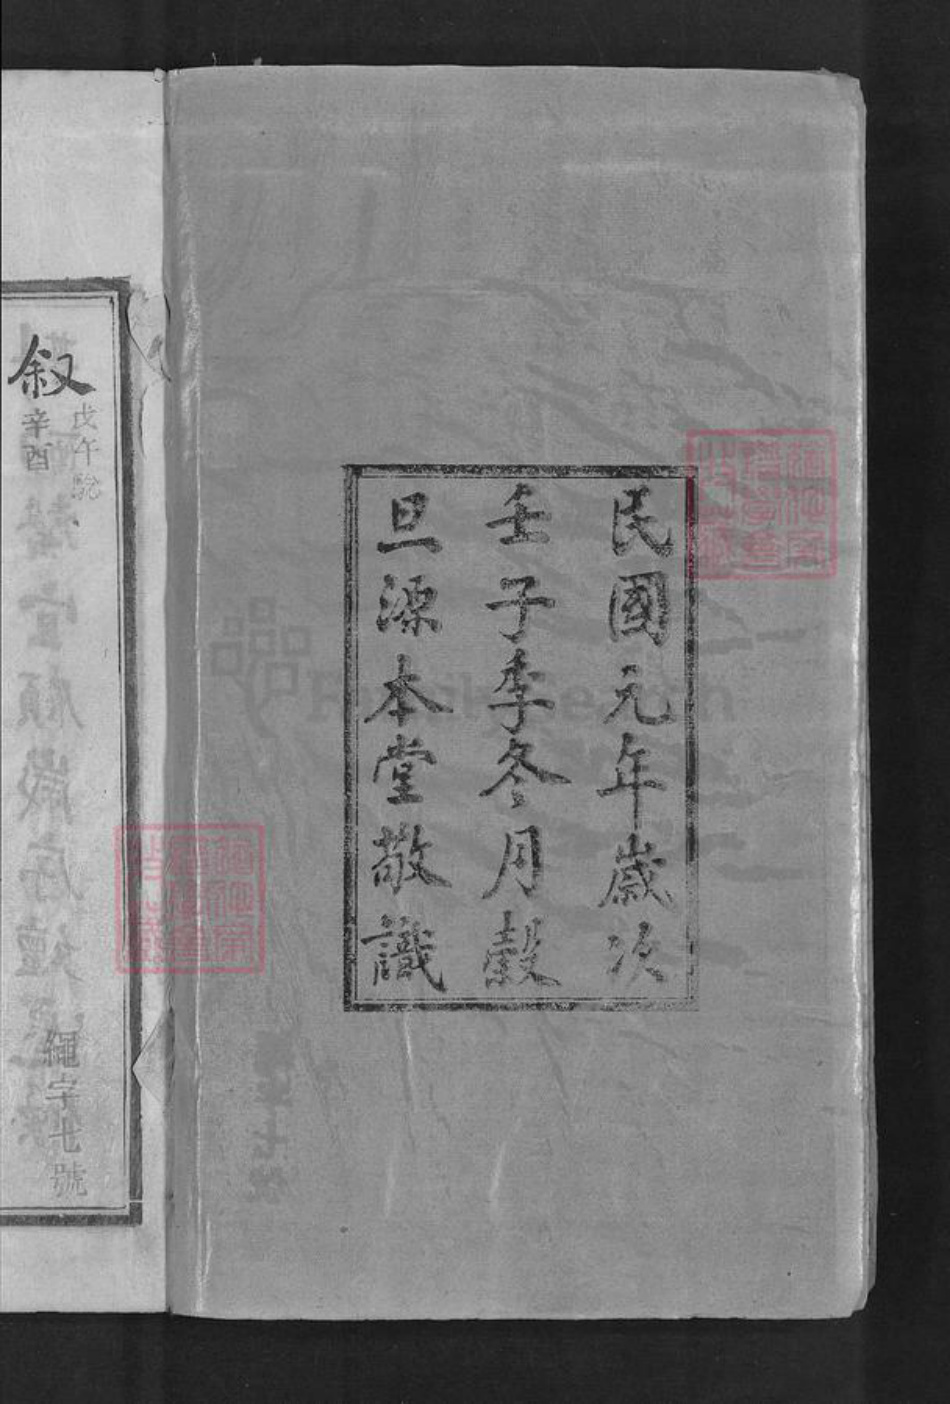 民國元年歲次
壬子季冬月穀
旦源本堂敬識
叙
戊午
辛酉
繩字七號